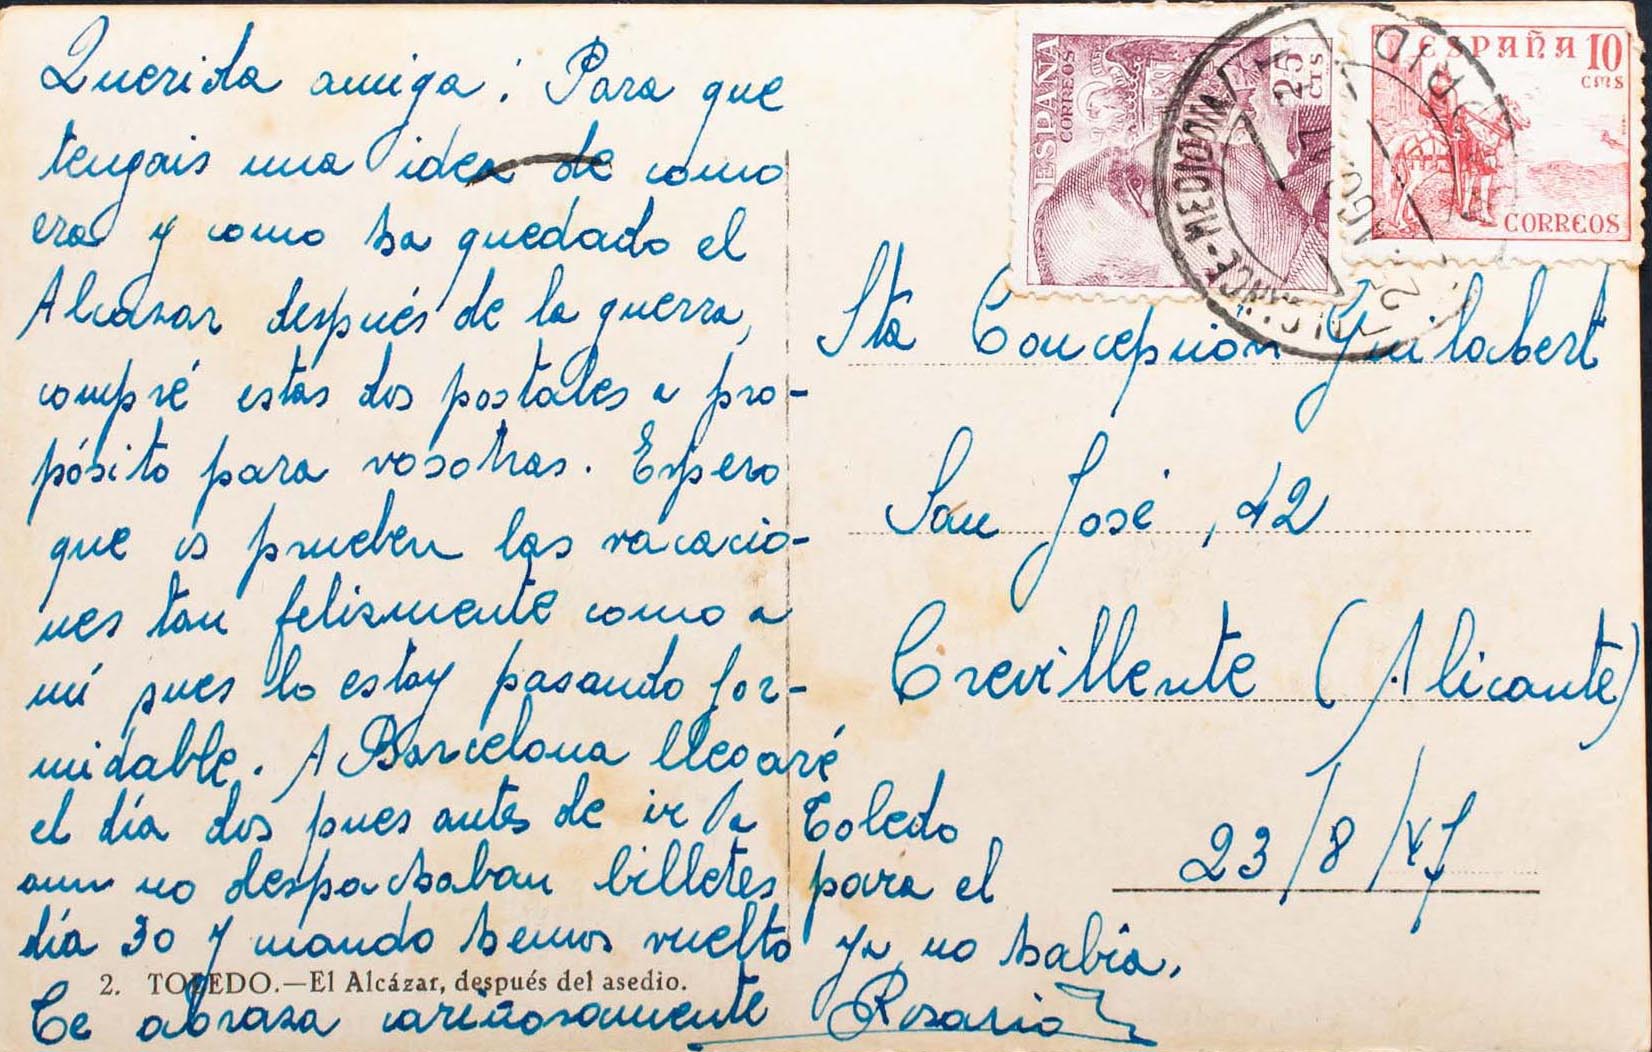 Querida amiga: Para que
tengais una idea de como
era y como ha quedado el
Alcazar después de la guerra,
compré estas dos postales a pro-
pósito para vosotras. Espero
que os prueben las vacacio-
nes tan felizmente como a
mí pues lo estoy pasando for-
midable. A Barcelona llegaré
el día dos pues antes de ir a Toledo
aun no despachaban billetes para el
día 30 y cuando hemos vuelto ya no había.
2. TOLEDO.—El Alcázar, después del asedio.
Te abraza cariñosamente Rosario
ESPAÑA
CORREOS
25
CTS
ESPAÑA 10
CTMS
CORREOS
Sta Concepción Guilabert
San José, 42
Crevillente (Alicante)
23/8/47